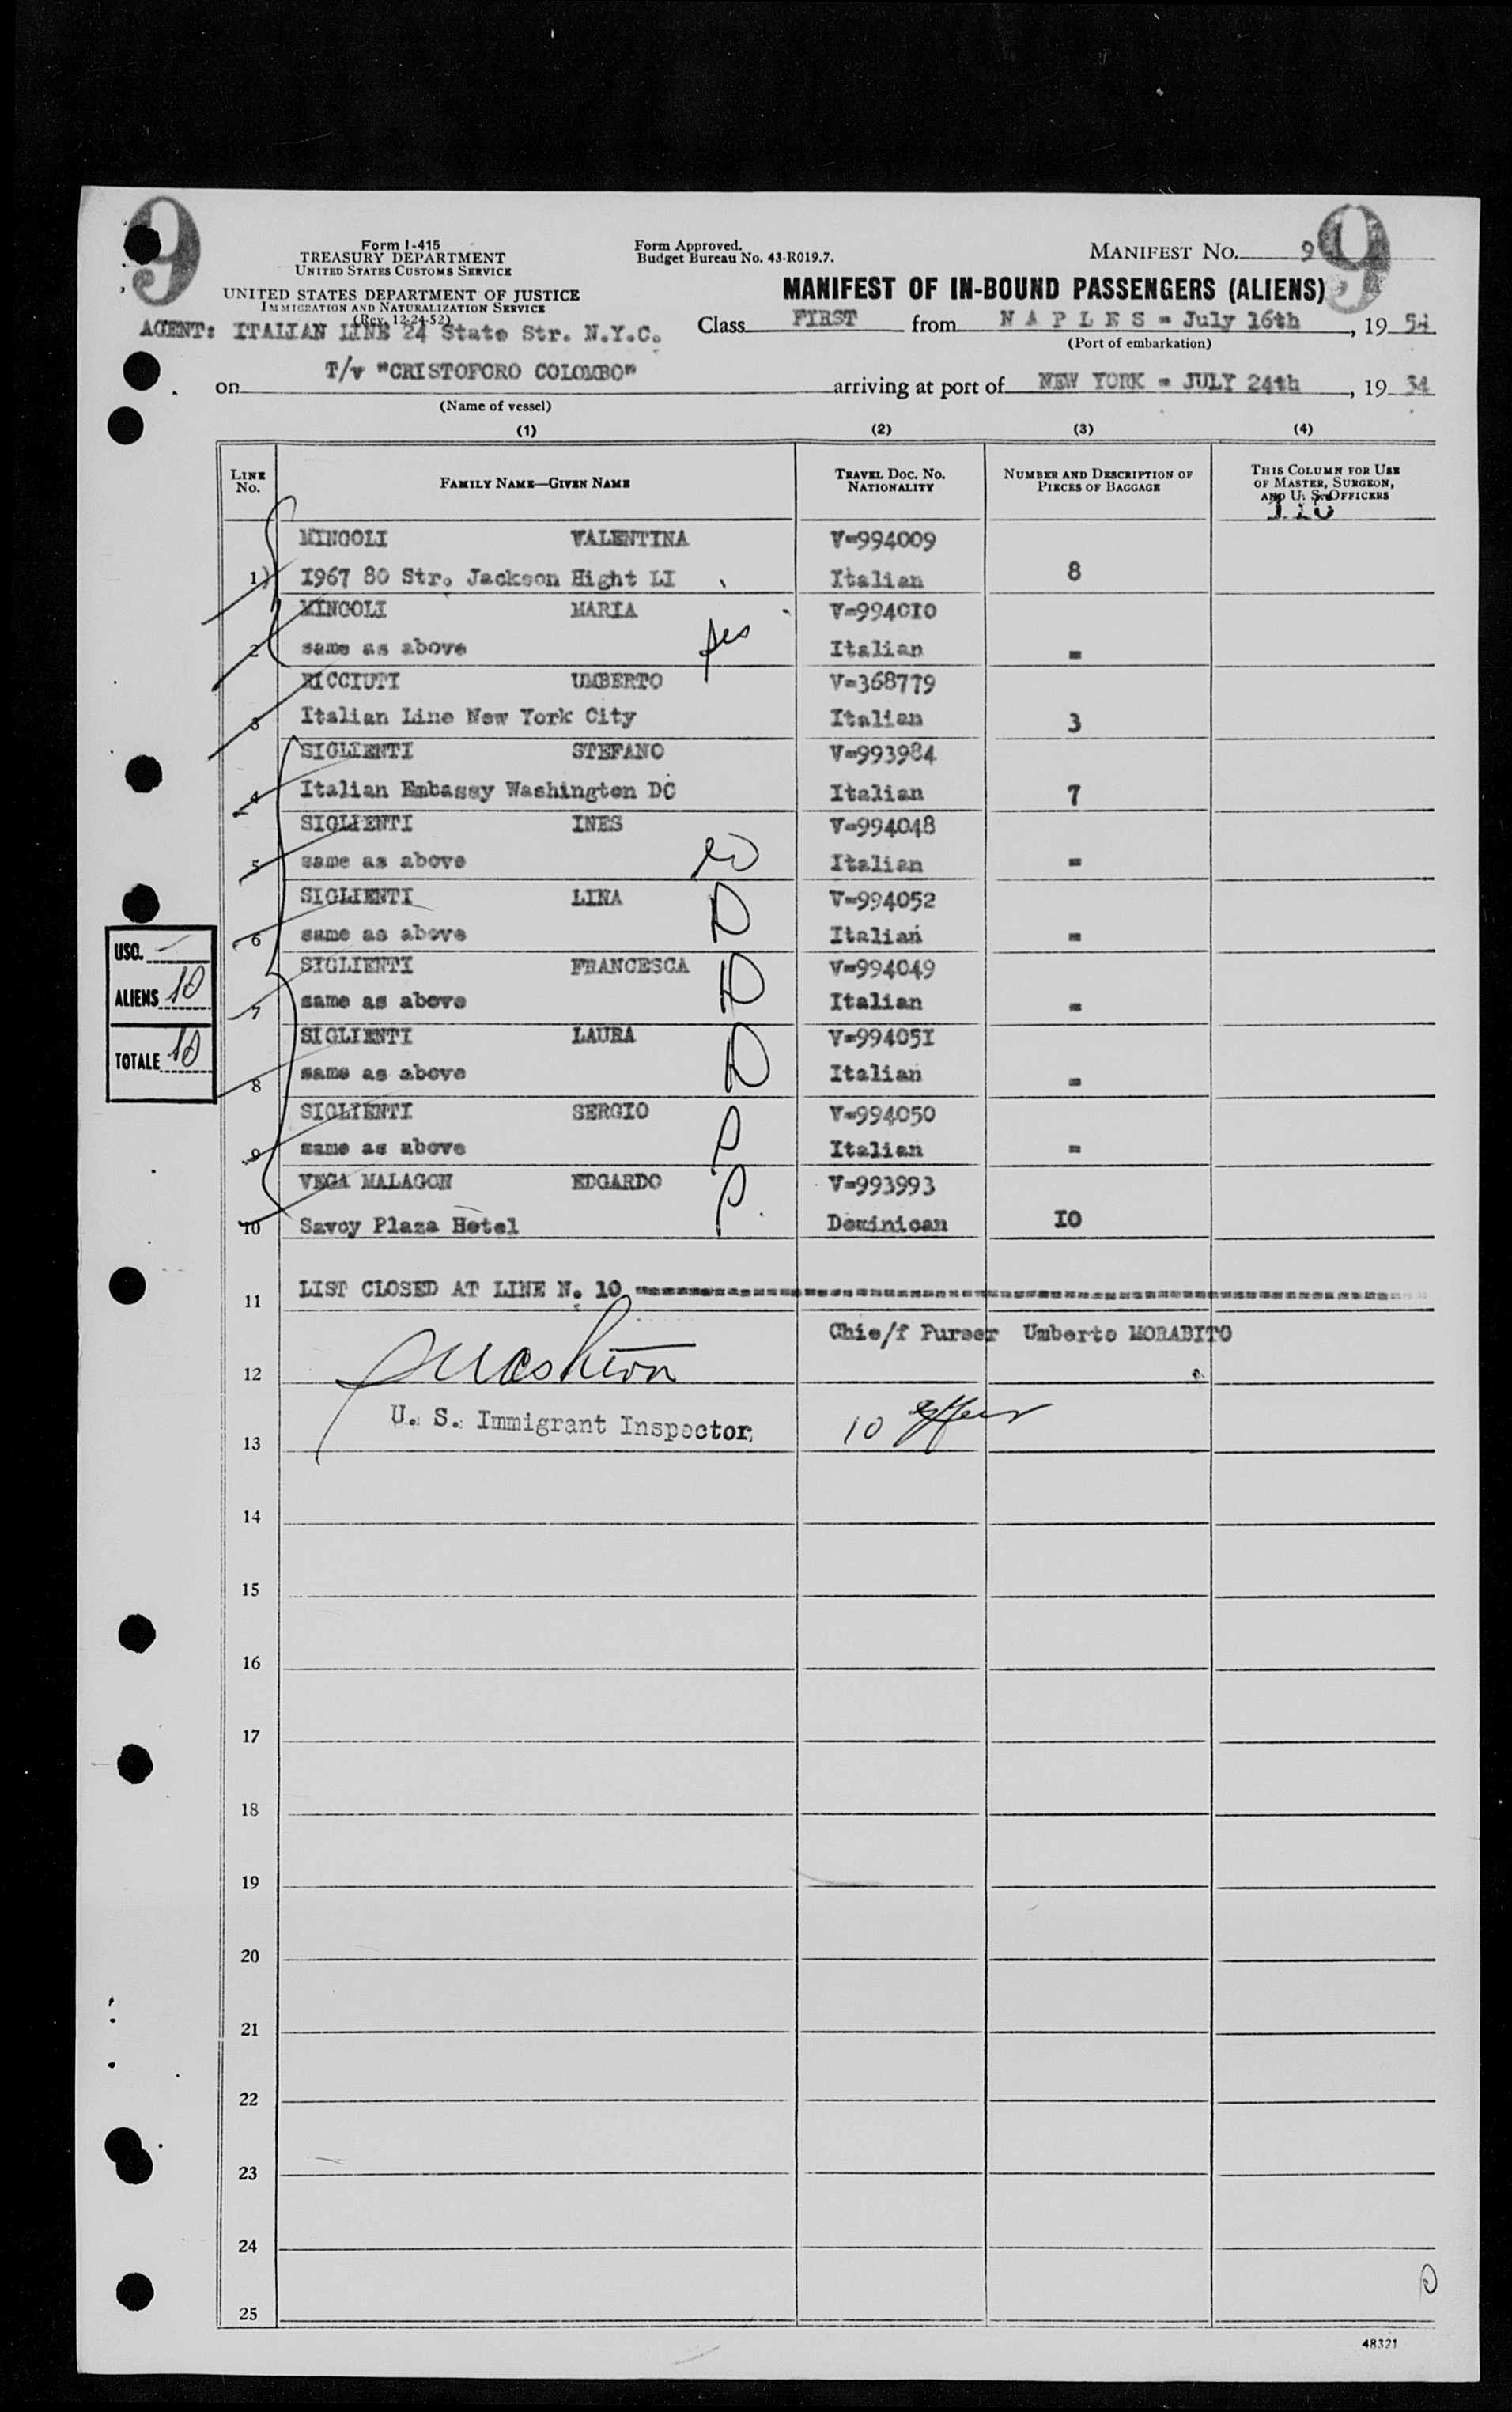 9
9
Form I-415
TREASURY DEPARTMENT
UNITED STATES CUSTOMS SERVICE
UNITED STATES DEPARTMENT OF JUSTICE
IMMIGRATION AND NATURALIZATION SERVICE
(Rev. 12-24-52)
Form Approved.
Budget Bureau No. 43-R019.7.
MANIFEST NO. 9
MANIFEST OF IN-BOUND PASSENGERS (ALIENS)
AGENT: ITALIAN LINE 24 State Str. N.Y.C.
Class FIRST from N A P L E S = July 16th, 19 54
(Port of embarkation)
on T/v "CRISTOFORO COLOMBO" arriving at port of NEW YORK = JULY 24th, 19 54
(Name of vessel)
(1) (2) (3) (4)
LINE No. FAMILY NAME—GIVEN NAME TRAVEL DOC. NO. NATIONALITY NUMBER AND DESCRIPTION OF PIECES OF BAGGAGE THIS COLUMN FOR USE OF MASTER, SURGEON, AND U. S. OFFICERS
MINGOLI VALENTINA V=994009
1 1967 80 Str. Jackson Hight LI Italian 8
MINGOLI MARIA V=994010
2 same as above Italian =
RICCIUTI UMBERTO V=368779
3 Italian Line New York City Italian 3
SIGLIENTI STEFANO V=993984
4 Italian Embassy Washington DC Italian 7
SIGLIENTI INES V=994048
5 same as above Italian =
SIGLIENTI LINA V=994052
6 same as above Italian =
SIGLIENTI FRANCESCA V=994049
7 same as above Italian =
SIGLIENTI LAURA V=994051
8 same as above Italian =
SIGLIENTI SERGIO V=994050
9 same as above Italian =
VEGA MALAGON EDGARDO V=993993
10 Savoy Plaza Hotel Dominican 10
USC. —
ALIENS 10
TOTALE 10
11 LIST CLOSED AT LINE N. 10
Chie/f Purser Umberto MORABITO
12
U. S. Immigrant Inspector
10
13
14
15
16
17
18
19
20
21
22
23
24
25
48321